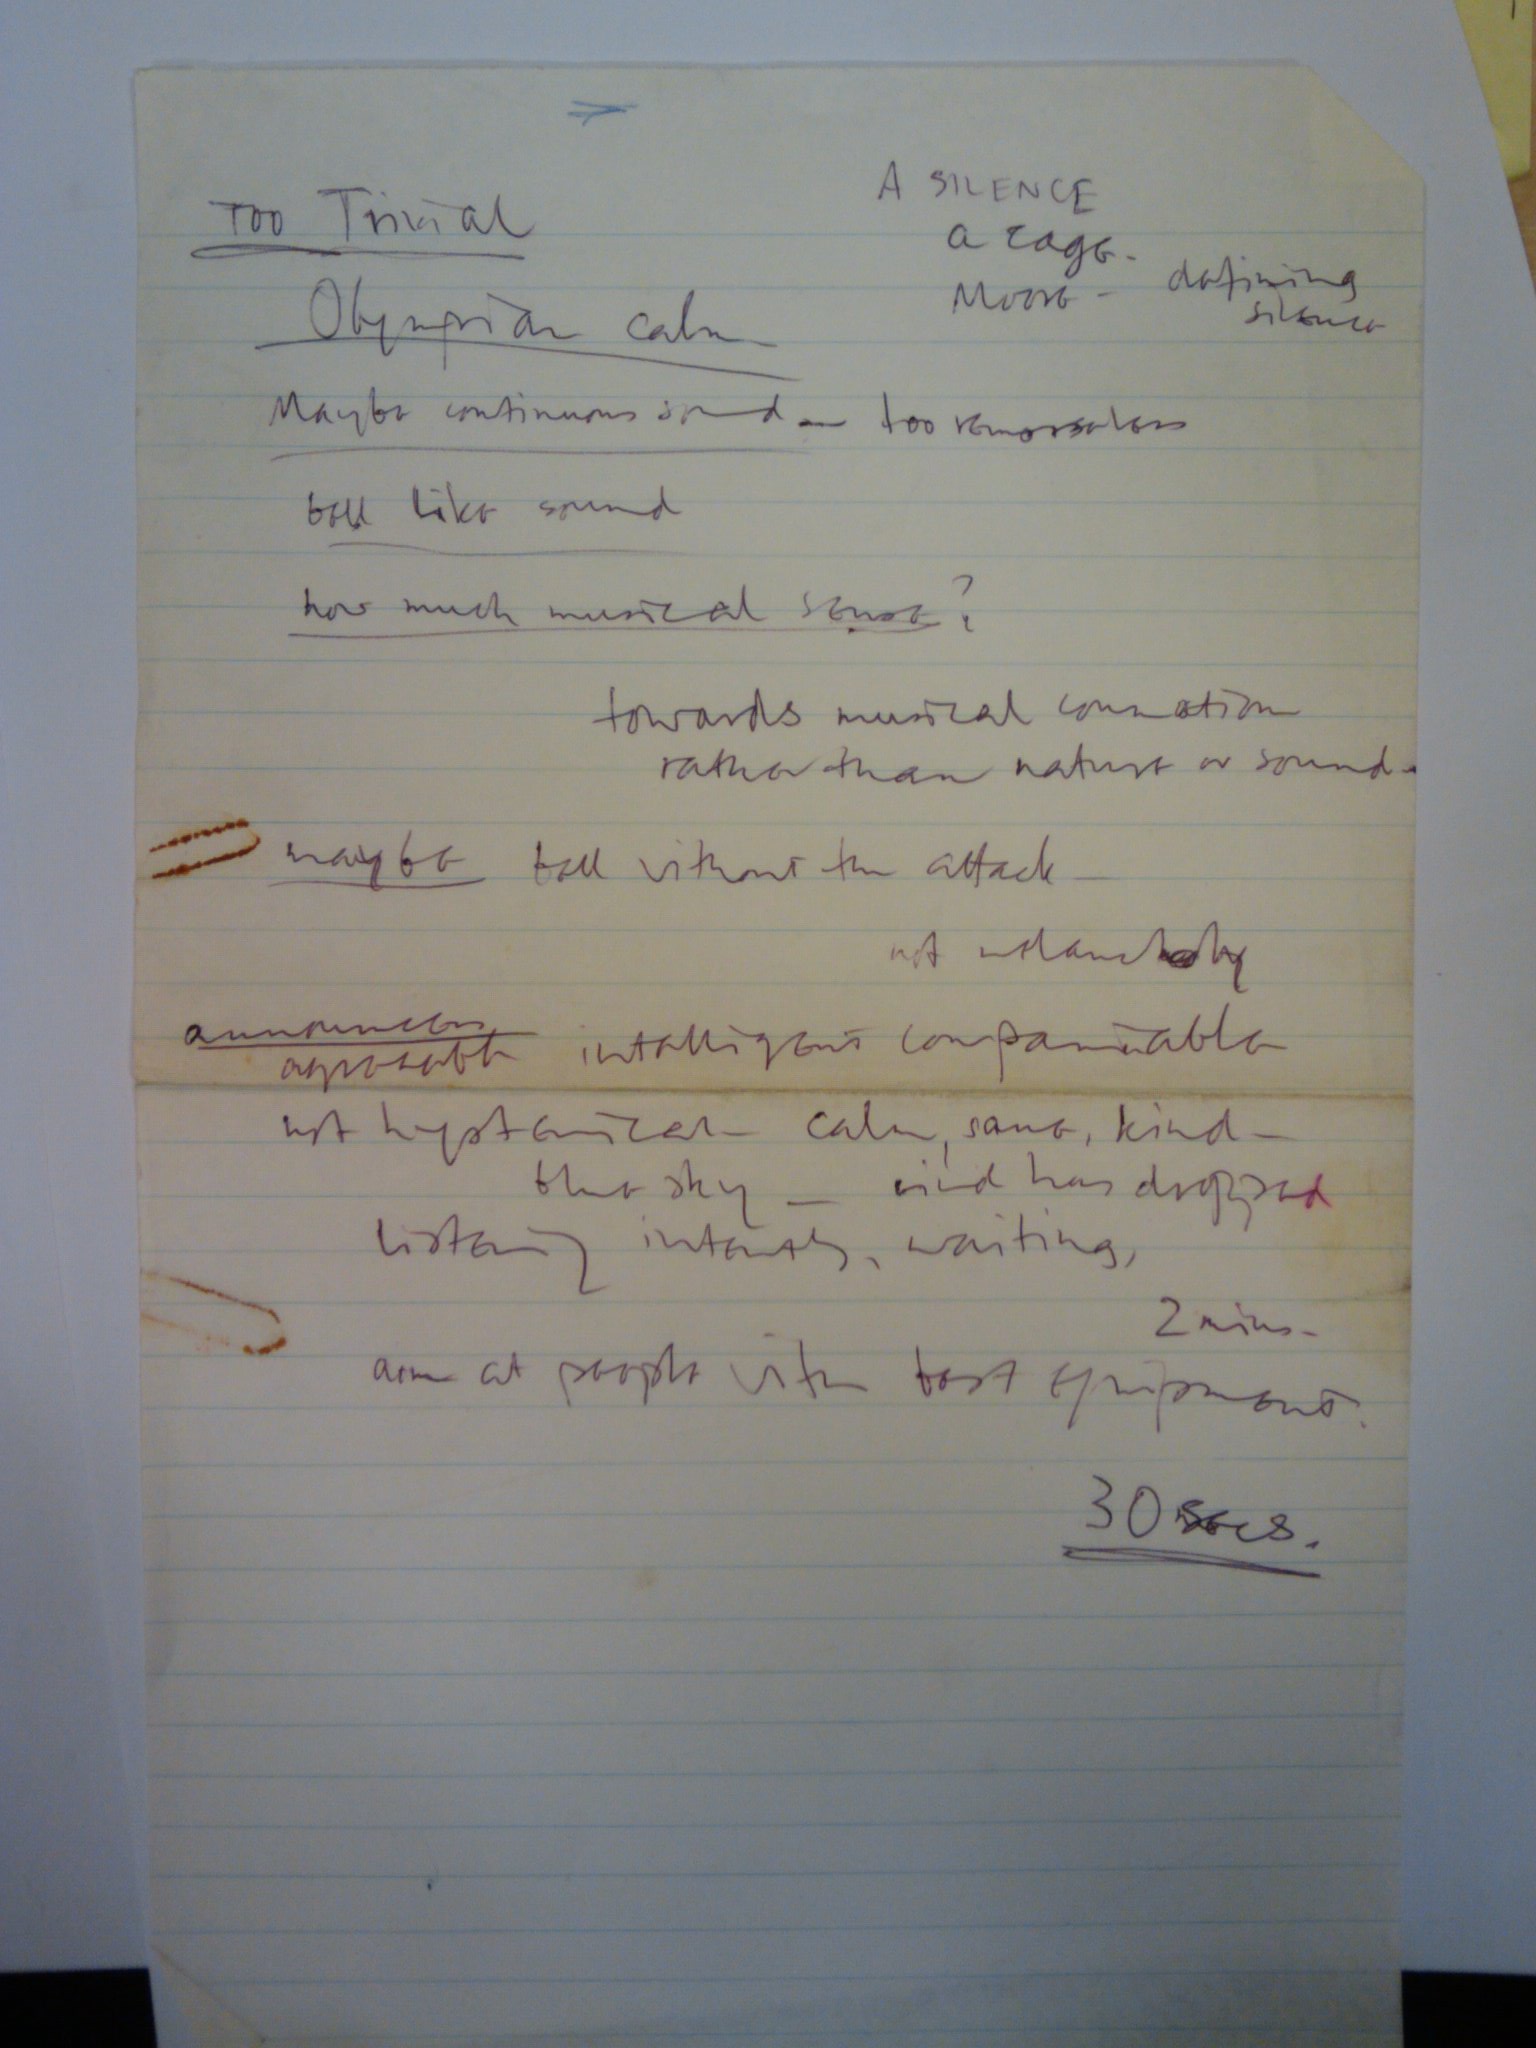 Too Trivial
A SILENCE
a cage.
Moore - defining
silence
Olympian calm
Maybe continuous sound - too remorseless
bell like sound
how much musical sense?
towards musical connotion
rather than nature or sound -
maybe bell without the attack -
not melancholy
announcers
agreeable intelligent companiable
not hysterical - calm, sane, kind -
blue sky - wind has dropped
listening intently, waiting,
2 mins -
aim at people with best equipment.
30 secs.